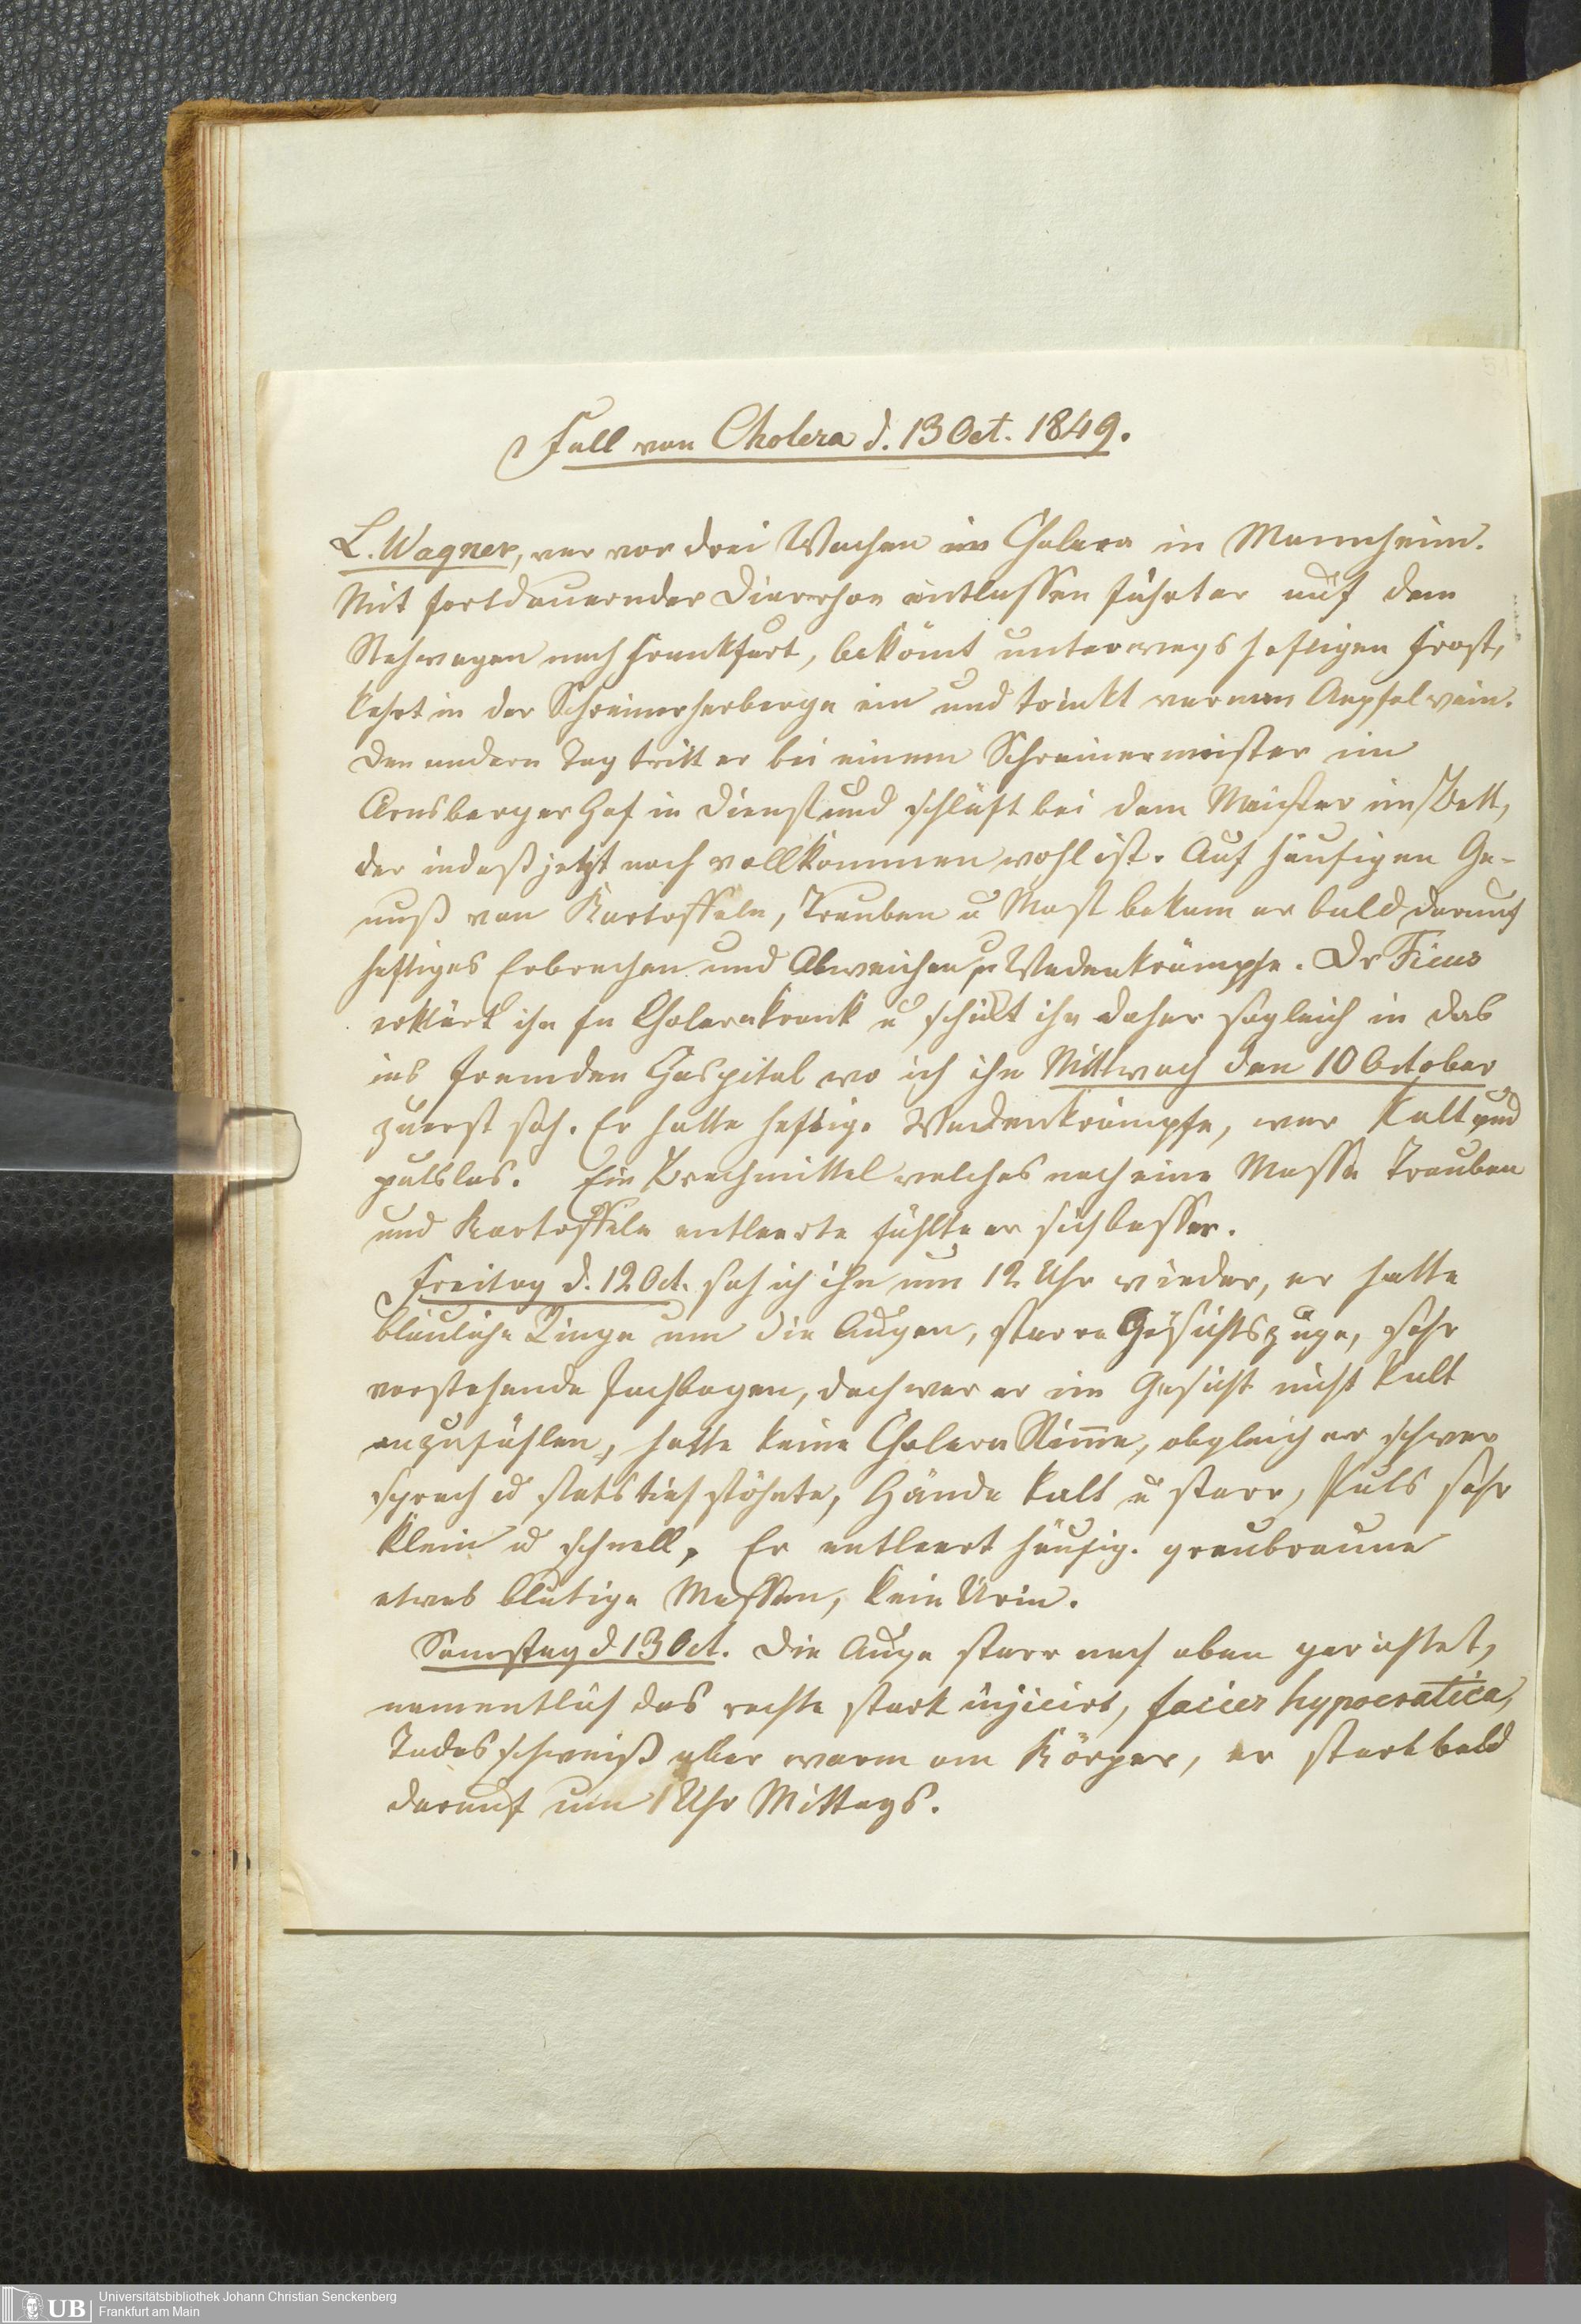 Fall von Cholera d. 13 Oct. 1849.
L. Wagner, war vor drei Wochen an Cholera in Mannheim.
Mit fortdauernder Diarrhoe entlassen fährt er auf dem
Stehwagen nach Frankfurt, bekömt unterwegs heftigen Frost,
kehrt in der Schreinerherberge ein und trinkt warmen Aepfelwein.
Den andern Tag tritt er bei einem Schreinermeister im
Arnsberger Hof in Dienst und schläft bei dem Meister im Bett,
der indeß jetzt noch vollkommen wohl ist. Auf häufigen Ge-
nuß von Kartoffeln, Trauben u Most bekam er bald darauf
heftiges Erbrechen und Abweichen u Wadenkrämpfe. Dr Ficus
erklärt ihn für Cholerakrank u schickt ihn daher sogleich in das
ins Fremden Hospital wo ich ihn Mittwoch den 10 October
zuerst sah. Er hatte heftige Wadenkrämpfe, war kalt und
pulslos. Ein Brechmittel welches noch eine Masse Trauben
und Kartoffeln entleerte fühlte er sich besser.
Freitag d. 12 Oct. sah ich ihn um 12 Uhr wieder, er hatte
bläuliche Ringe um die Augen, starre Gesichtszüge, sehr
vorstehende Jochbogen, doch war er im Gesicht nicht kalt
anzufühlen, hatte keine Cholera Stimme, obgleich er schwer
sprach u stets tief stöhnte, Hände kalt u starr, Puls sehr
klein u schnell, Er entleert häufig. graubraune
etwas blutige Massen, kein Urin.
Samstag d 13 Oct. Die Auge starr nach oben gerichtet,
namentlich das rechte stark injicirt, facies hypocratica,
Todesschweiß aber warm am Körper, er starb bald
darauf um 1 Uhr Mittags.
Universitätsbibliothek Johann Christian Senckenberg
Frankfurt am Main
UB